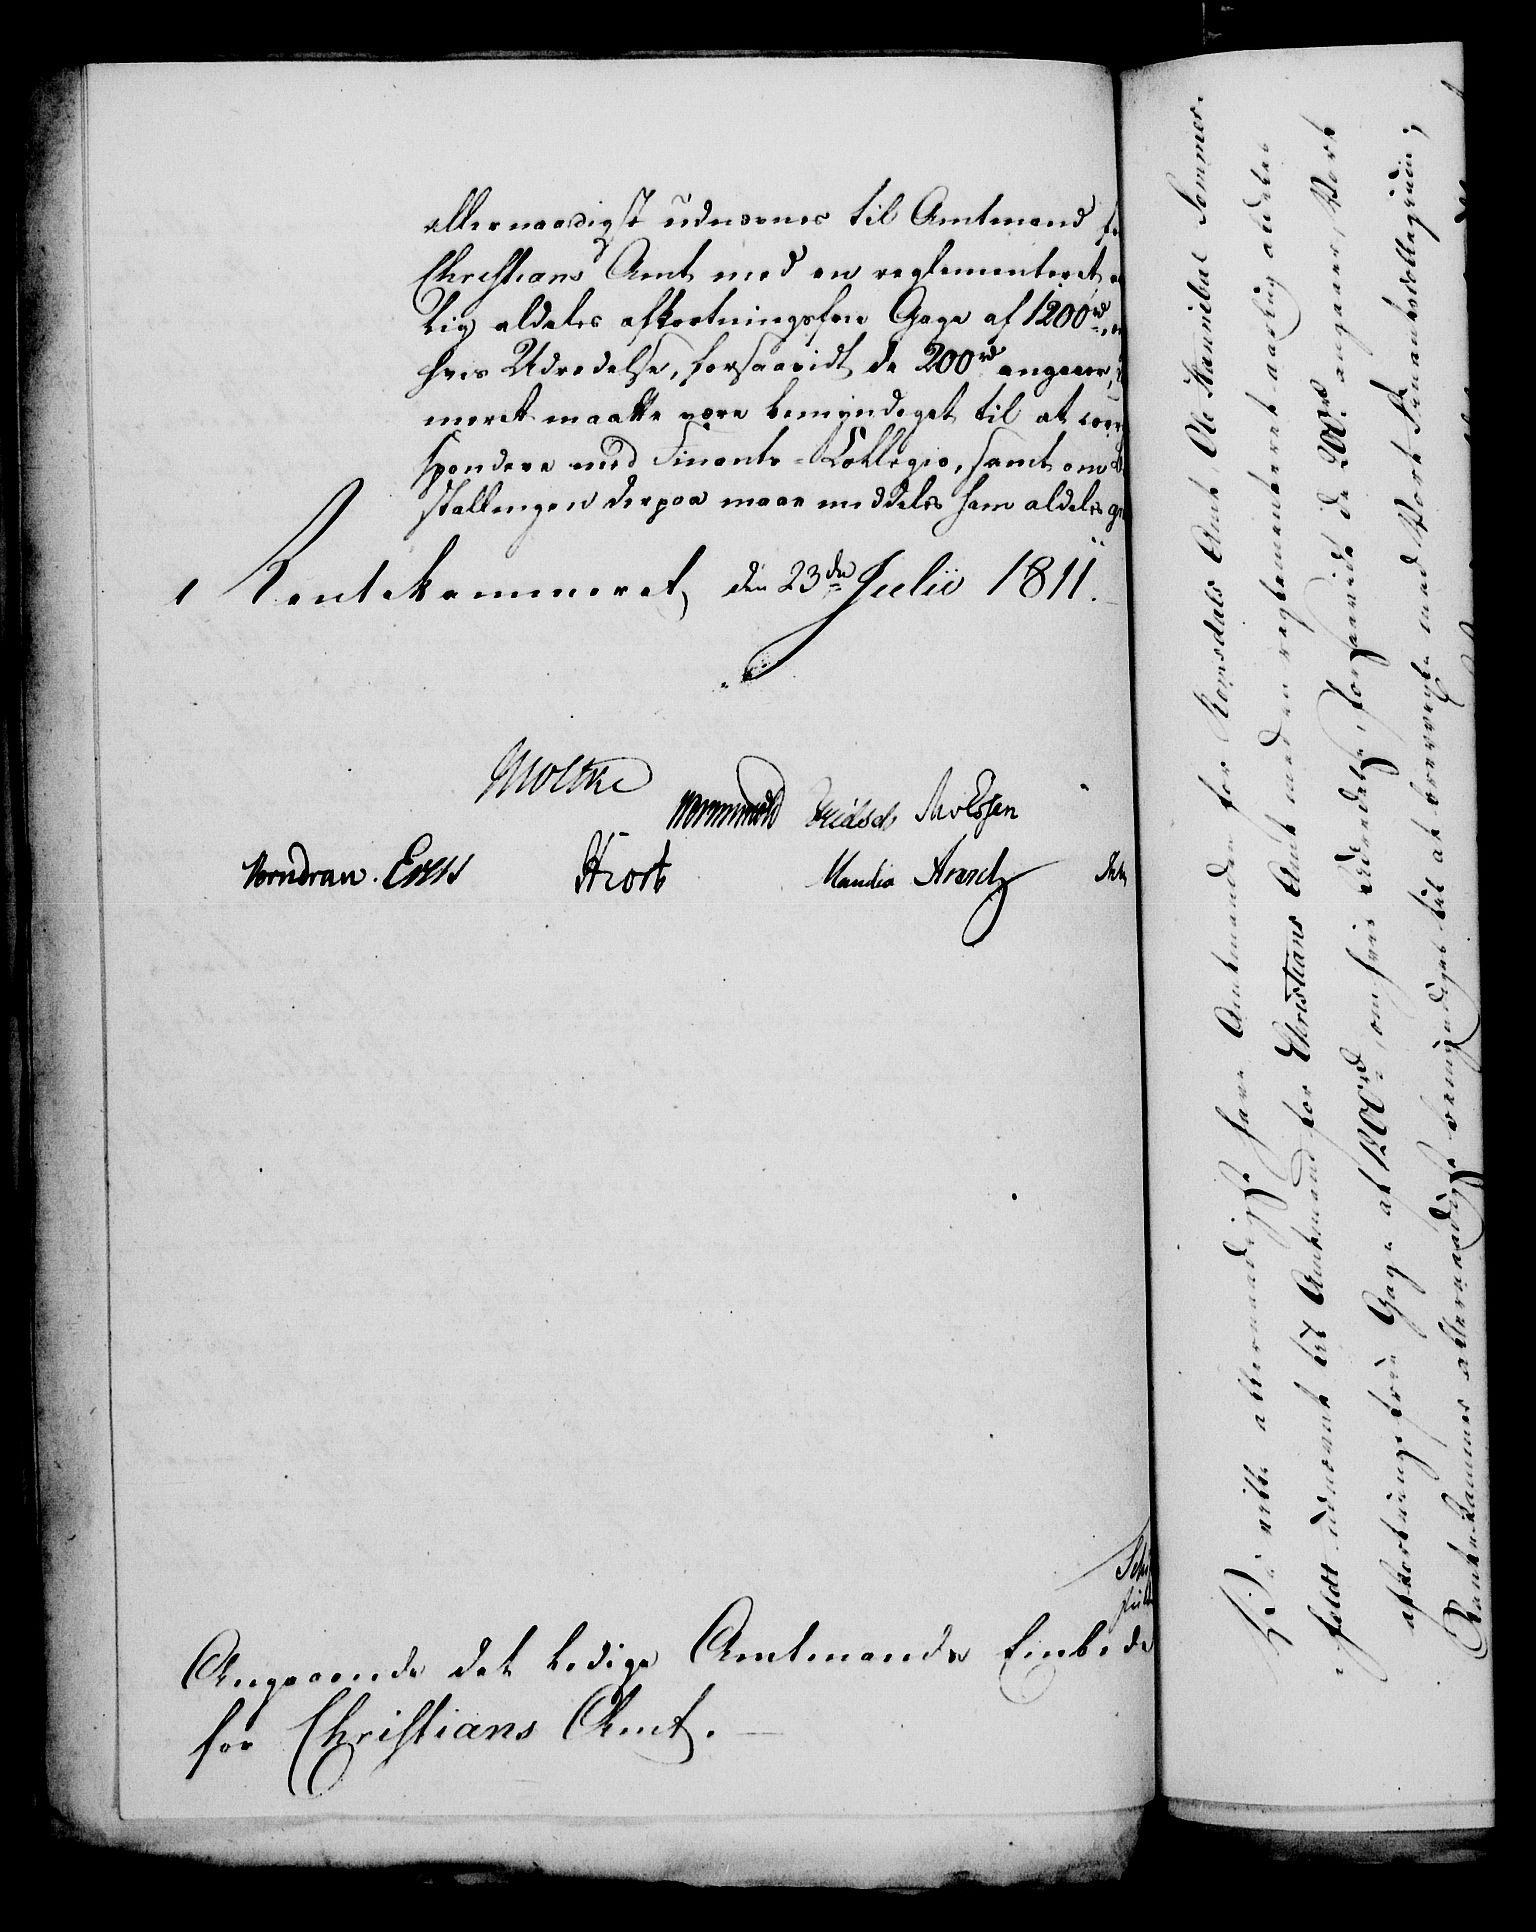 allernaadigst udnævnes til Amtmand fo
Christians Amt med en reglementeret a
lig aldeles afkortningsfrie Gage af 1200 rd,
hvis Udredelse, forsaavidt de 200 rd angaaer,
meret maatte være bemyndiget til at corre
spondere med Finants-Collegio, samt om B
stallingen derpaa maae meddeles ham aldeles gr
Rentekammeret, den 23de Julii 1811.
Moltke
Wormskiold
Vorndran.
Knudsen Arentz
Angaaende det ledige Amtmands Embede
for Christians Amt.
Vi ville allernaadigst have Amtmanden for Romsdals Amt, Ole Hannibal Sommer-
feldt udnævnt til Amtmand for Christians Amt med en reglementeret aarlig aldeles
afkortningsfrie Gage af 1200 rd, om hvis Udredelse, forsaavidt de 200 rd angaaer, Vort
Rentekammer allernaadigst bemyndiges til at brevvexle med Vort Finantscollegium;